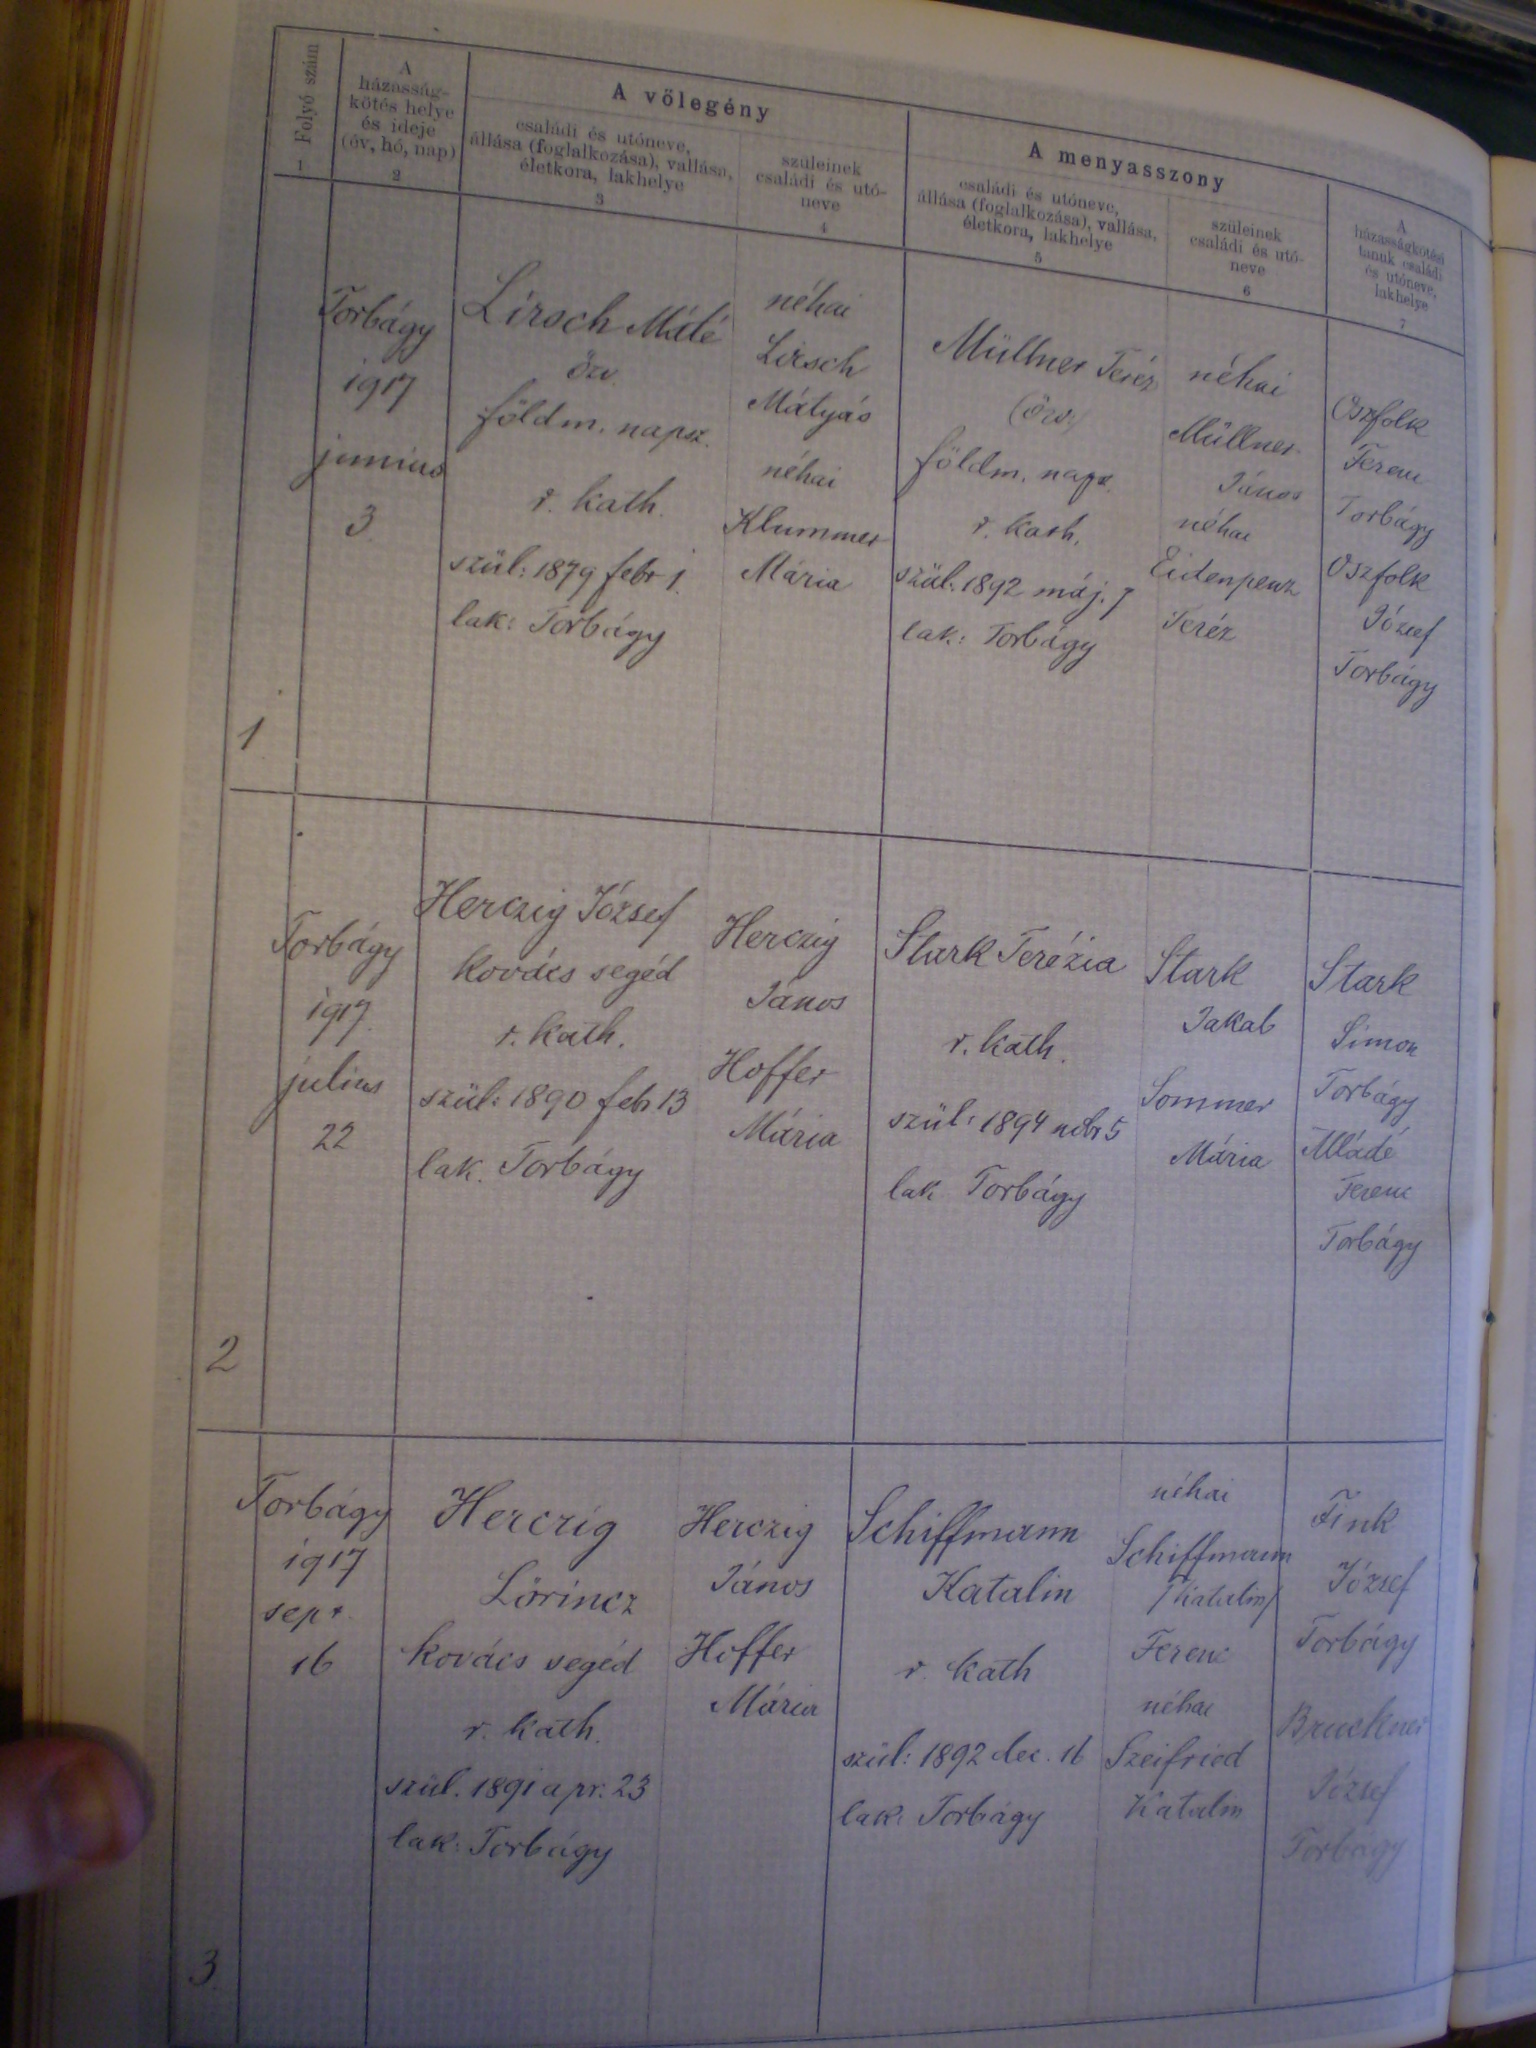 Folyó szám
1
A
házasság-
kötés helye
és ideje
(év, hó, nap)
2
A vőlegény
családi és utóneve,
állása (foglalkozása), vallása,
életkora, lakhelye
3
szüleinek
családi és utó-
neve
4
A menyasszony
családi és utóneve,
állása (foglalkozása), vallása,
életkora, lakhelye
5
szüleinek
családi és utó-
neve
6
A
házasságkötési
tanuk családi
és utóneve,
lakhelye
7
1
Torbágy
1917
junius
3.
Lirsch Máté
özv.
földm. napsz.
r. kath.
szül: 1879 febr 1.
lak: Torbágy
néhai
Lirsch
Mátyás
néhai
Klummer
Mária
Müllner Teréz
(özv.)
földm. naps.
r. kath.
szül: 1892 máj. 7
lak: Torbágy
néhai
Müllner
János
néhai
Eidenpenz
Teréz
Oszfolk
Ferenc
Torbágy
Oszfolk
József
Torbágy
2
Torbágy
1917.
julius
22
Herczig József
kovács segéd
r. kath.
szül: 1890 feb 13
lak. Torbágy
Herczig
János
Hoffer
Mária
Stark Terézia
r. kath.
szül: 1894 nobr 5
lak Torbágy
Stark
Jakab
Sommer
Mária
Stark
Simon
Torbágy
Mládé
Ferenc
Torbágy
3.
Torbágy
1917
sept.
16
Herczig
Lörincz
kovács segéd
r. kath.
szül. 1891 apr. 23
lak: Torbágy
Herczig
János
Hoffer
Mária
Schiffmann
Katalin
r. kath
szül: 1892 dec. 16
lak: Torbágy
néhai
Schiffmann
/Katalin/
Ferenc
néhai
Szeifried
Katalin
Fink
József
Torbágy
Bruckner
József
Torbágy